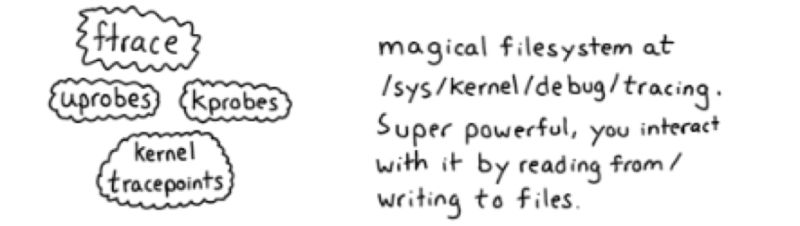 ftrace
uprobes kprobes
kernel
tracepoints
magical filesystem at
/sys/kernel/debug/tracing.
Super powerful, you interact
with it by reading from/
writing to files.